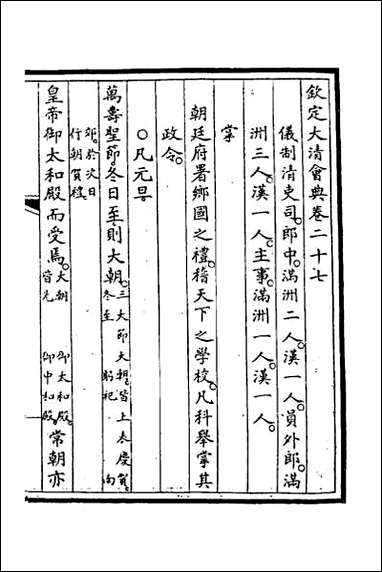 欽定大清會典卷二十七
儀制清吏司。郎中。滿洲二人。漢一人。員外郎。滿
洲三人。漢一人。主事。滿洲一人。漢一人。
掌
朝廷府署鄉國之禮。稽天下之學校。凡科舉掌其
政令。
○凡元旦
萬壽聖節。冬日至則大朝。三大節大朝。皆上表慶賀。冬至 躬祀 南
郊。於次日行朝賀禮。
皇帝御太和殿而受焉。大朝 御太和殿。皆先 御中和殿。常朝亦